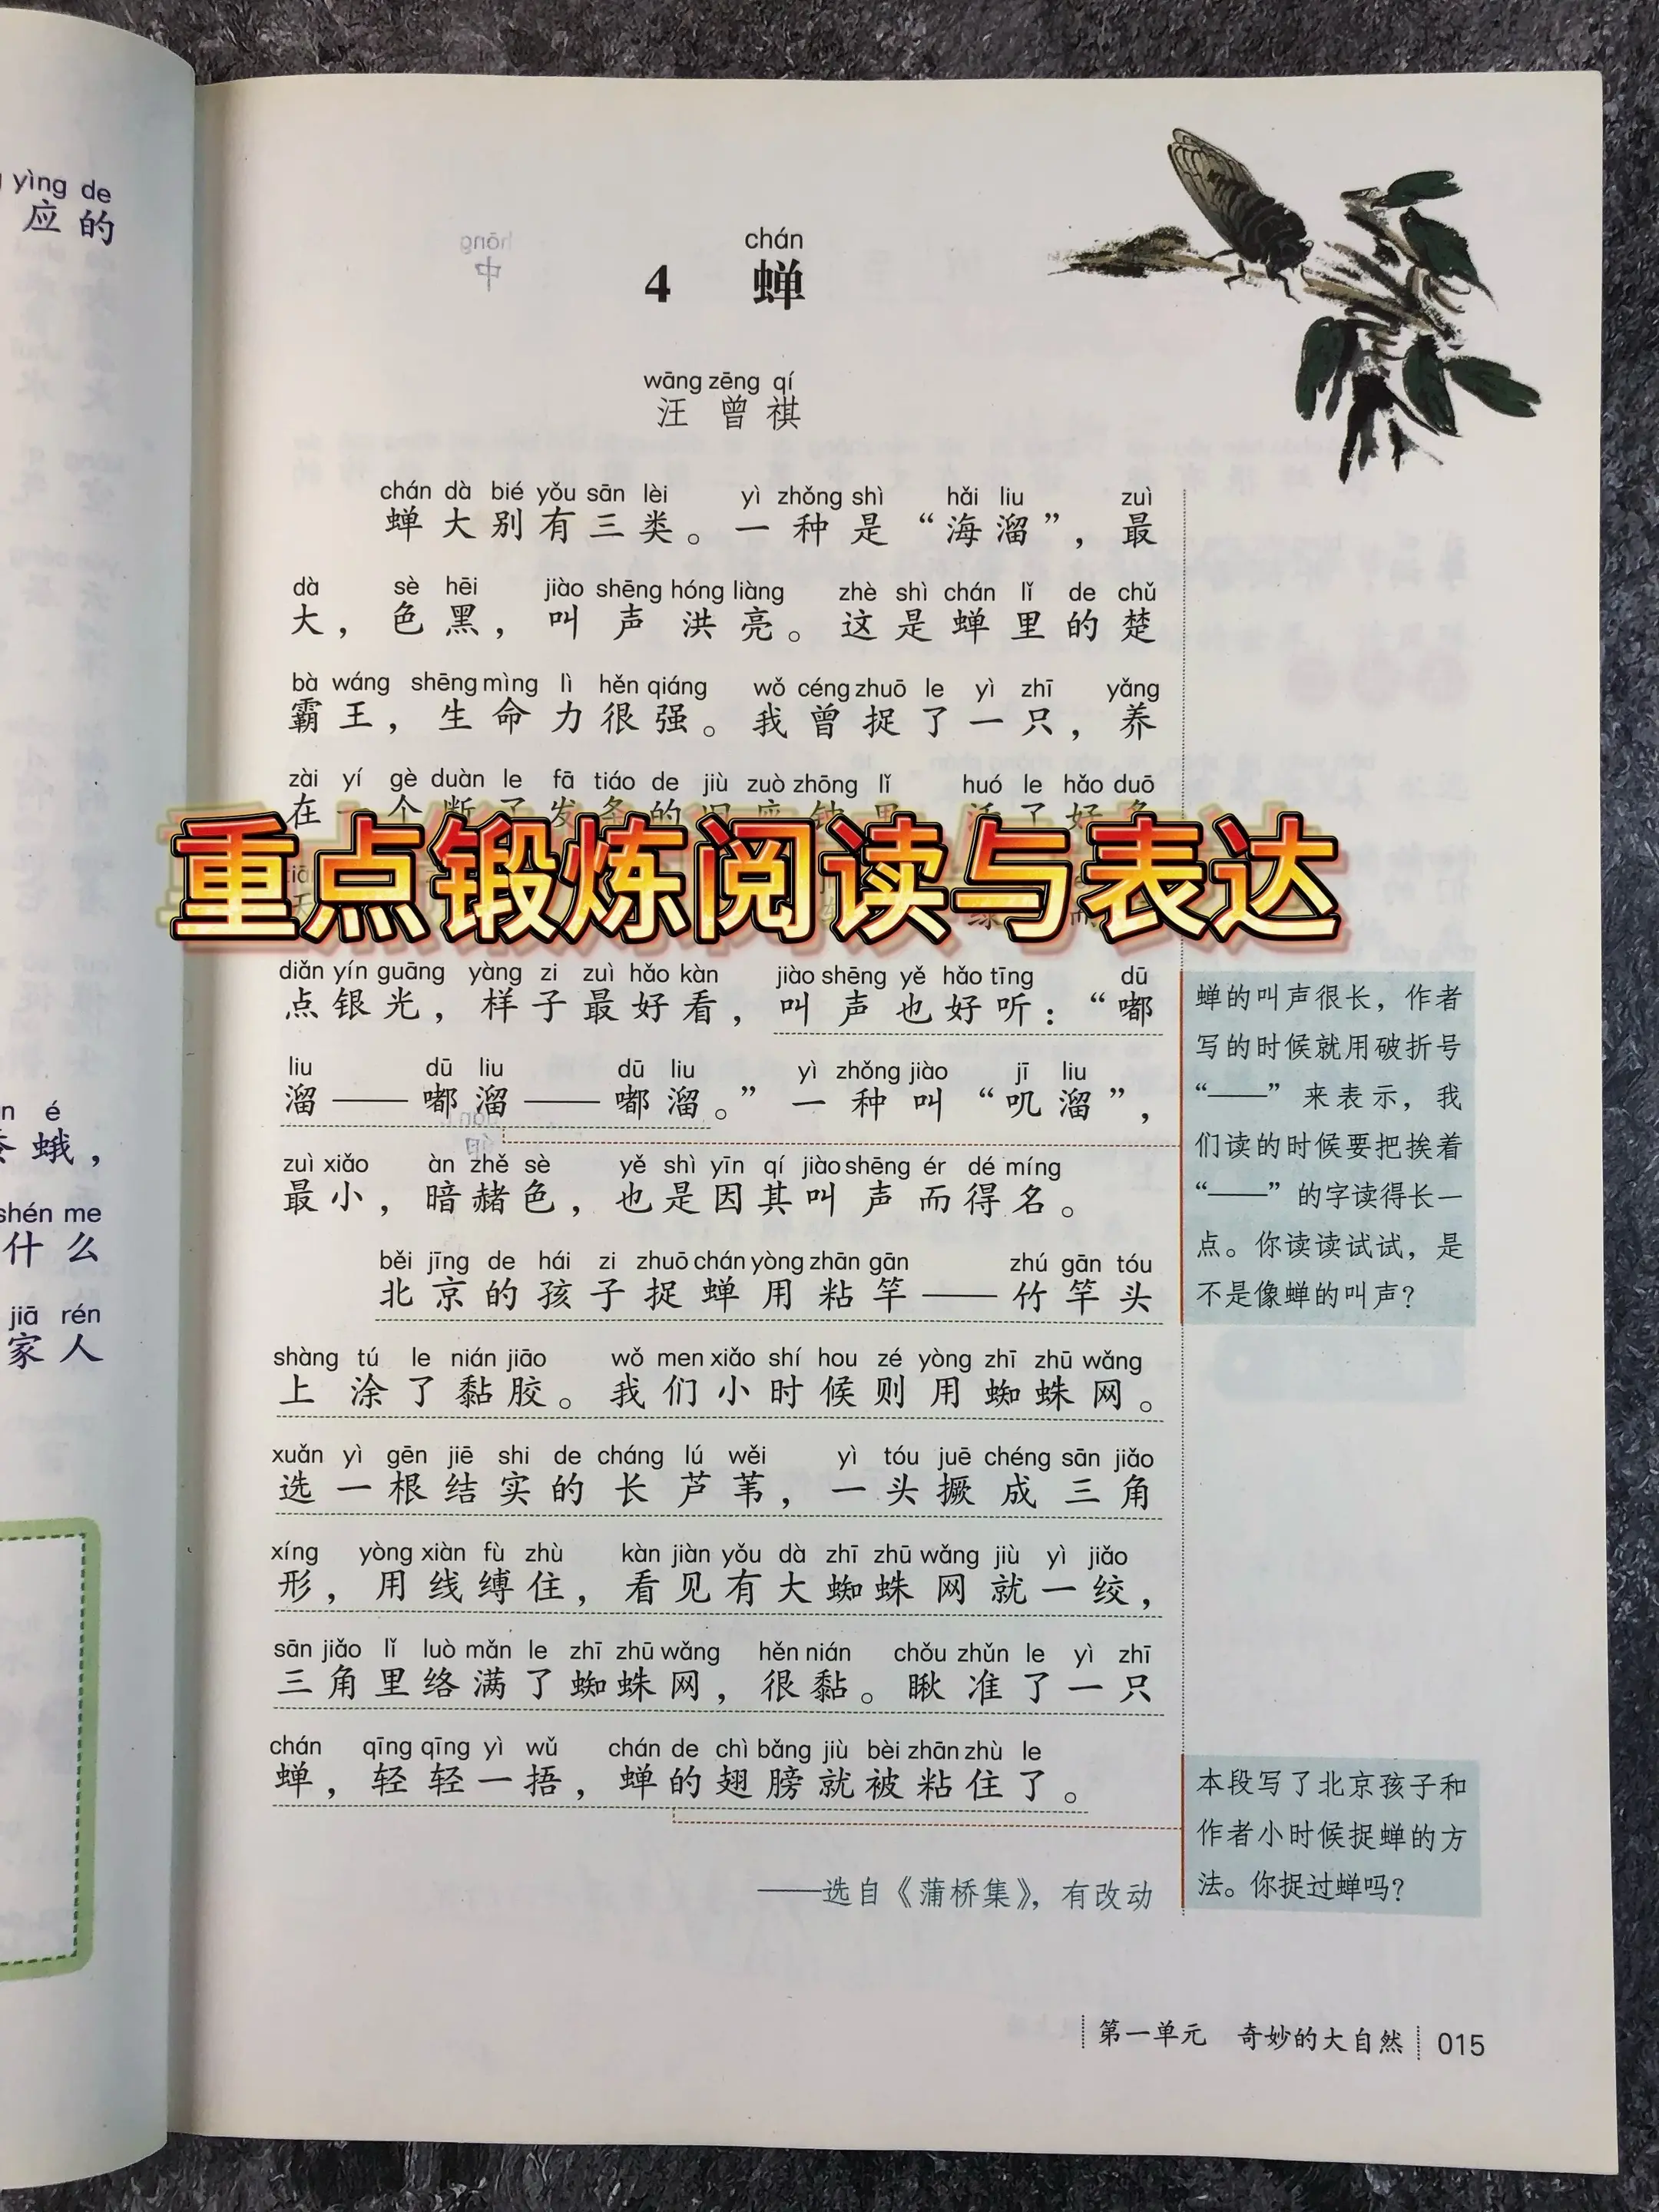 yìng de
应的
é
蛾，
shén me
什么
jiā rén
家人
chán
4 蝉
wāng zēng qí
汪曾祺
chán dà bié yǒu sān lèi yì zhǒng shì hǎi liu zuì
蝉大别有三类。一种是“海溜”，最
dà sè hēi jiào shēng hóng liàng zhè shì chán lǐ de chǔ
大，色黑，叫声洪亮。这是蝉里的楚
bà wáng shēng mìng lì hěn qiáng wǒ céng zhuō le yì zhī yǎng
霸王，生命力很强。我曾捉了一只，养
zài yí gè duàn le fā tiáo de jiù zuò zhōng lǐ huó le hǎo duō
在一个断了发条的旧座钟里，活了好多
重点锻炼阅读与表达
diǎn yín guāng yàng zi zuì hǎo kàn jiào shēng yě hǎo tīng dū
点银光，样子最好看，叫声也好听：“嘟
liu dū liu dū liu yì zhǒng jiào jī liu
溜——嘟溜——嘟溜。”一种叫“叽溜”，
zuì xiǎo àn zhě sè yě shì yīn qí jiào shēng ér dé míng
最小，暗赭色，也是因其叫声而得名。
běi jīng de hái zi zhuō chán yòng zhān gān zhú gān tóu
北京的孩子捉蝉用粘竿——竹竿头
shàng tú le nián jiāo wǒ men xiǎo shí hou zé yòng zhī zhū wǎng
上涂了黏胶。我们小时候则用蜘蛛网。
xuǎn yì gēn jiē shi de cháng lú wěi yì tóu juē chéng sān jiǎo
选一根结实的长芦苇，一头撅成三角
xíng yòng xiàn fù zhù kàn jiàn yǒu dà zhī zhū wǎng jiù yì jiǎo
形，用线缚住，看见有大蜘蛛网就一绞，
sān jiǎo lǐ luò mǎn le zhī zhū wǎng hěn nián chǒu zhǔn le yì zhī
三角里络满了蜘蛛网，很黏。瞅准了一只
chán qīng qīng yì wǔ chán de chì bǎng jiù bèi zhān zhù le
蝉，轻轻一捂，蝉的翅膀就被粘住了。
——选自《蒲桥集》，有改动
蝉的叫声很长，作者
写的时候就用破折号
“——”来表示，我
们读的时候要把挨着
“——”的字读得长一
点。你读读试试，是
不是像蝉的叫声？
本段写了北京孩子和
作者小时候捉蝉的方
法。你捉过蝉吗？
第一单元 奇妙的大自然 015